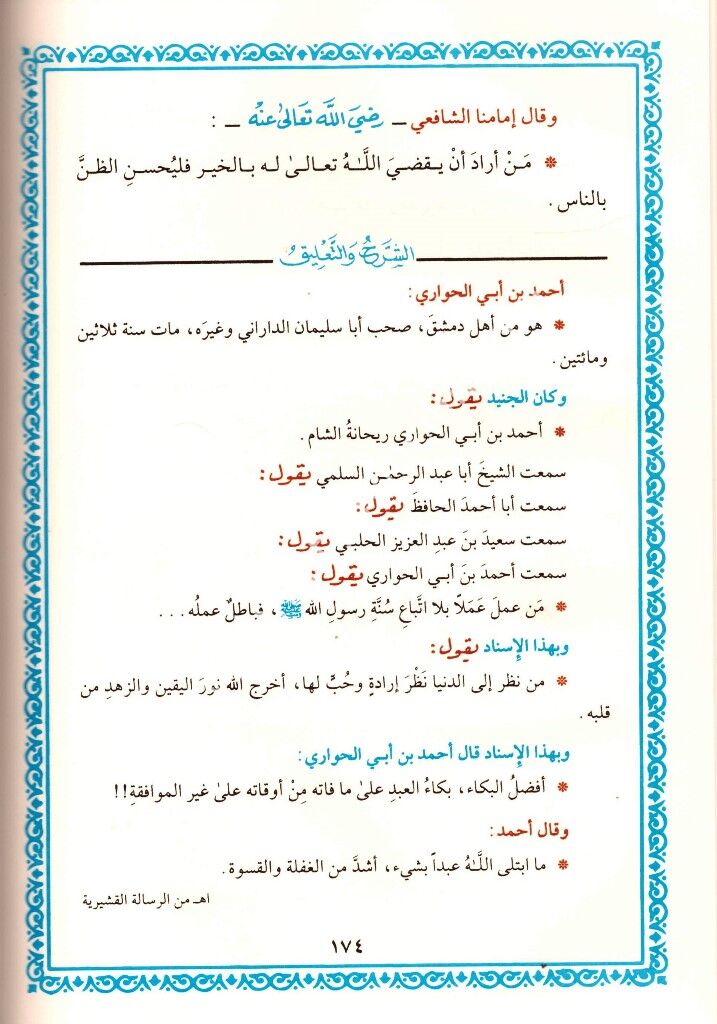 وقال إمامنا الشافعي ــ رضيَ اللَّه تعَالىٰ عنهُ ــ :
* مَـنْ أرادَ أنْ يـقـضـيَ اللَّـٰهُ تعـالـىٰ لـه بـالـخيـر فليُحسـنِ الظـنَّ
بالناس .
الشرحُ والتَّعليقُ
أحمد بن أبـي الحواري:
* هو من أهل دمشقَ، صحب أبا سليمان الداراني وغيرَه، مات سنة ثلاثين
ومائتين .
وكان الجنيد يقول:
* أحمد بن أبـي الحواري ريحانةُ الشام .
سمعت الشيخَ أبا عبد الرحمٰن السلمي يقول:
سمعت أبا أحمدَ الحافظَ يقول:
سمعت سعيدَ بنَ عبدِ العزيز الحلبـي يقول:
سمعت أحمدَ بنَ أبـي الحواري يقول:
* مَن عملَ عَمَلًا بلا اتَّباعِ سُنَّةِ رسولِ الله ﷺ، فباطلٌ عملُه . . .
وبهذا الإسناد يقول:
* من نظر إلى الدنيا نَظْرَ إرادةٍ وحُبٍّ لها، أخرج الله نورَ اليقين والزهدِ من
قلبه .
وبهذا الإسناد قال أحمد بن أبـي الحواري:
* أفضلُ البكاء، بكاءُ العبدِ علىٰ ما فاته مِنْ أوقاته علىٰ غير الموافقةِ!!
وقال أحمد:
* ما ابتلى اللَّـٰهُ عبداً بشيء، أشدَّ من الغفلة والقسوة .
اهـ من الرسالة القشيرية
١٧٤